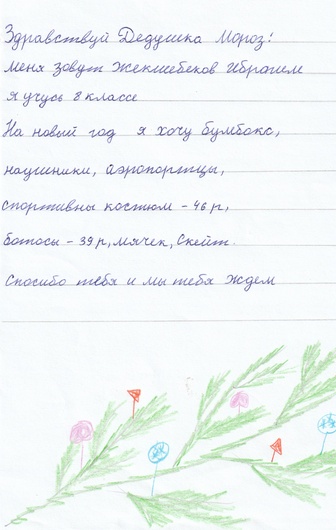 Здравствуй Дедушка Мороз!
меня зовут Жекшебеков Ибрагим
я учусь 8 классе
На новый год я хочу бумбокс,
наушники, аэропортцы,
спортивны костюм - 46 р,
ботосы - 39 р, мячек, Скейт.
Спосибо тебя и мы тебя ждем